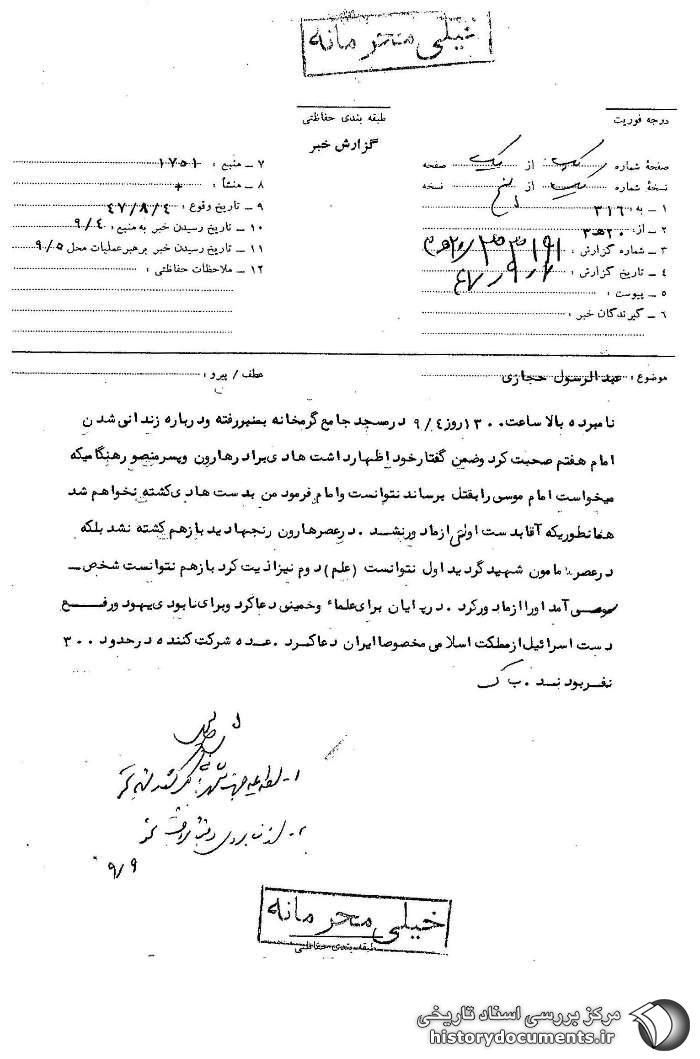 خیلی محرمانه
درجه فوریت
طبقه بندی حفاظتی
گزارش خبر
صفحهٔ شماره یک از یک صفحه
نسخهٔ شماره یک از پنج نسخه
۱ ــ به: ۳۱۶
۲ ــ از: ۲۰ ه‍ ۳
۳ ــ شماره گزارش:
۴ ــ تاریخ گزارش:
۵ ــ پیوست:
۶ ــ گیرندگان خبر:
۷ ــ منبع: ۱۷۵۱
۸ ــ منشأ: +
۹ ــ تاریخ وقوع: ۴۷/۸/۴
۱۰ ــ تاریخ رسیدن خبر به منبع: ۹/۴
۱۱ ــ تاریخ رسیدن خبر برهبر عملیات محل ۹/۵
۱۲ ــ ملاحظات حفاظتی:
موضوع: عبدالرسول حجازی
عطف / پیرو:
نامبرده بالا ساعت ۱۳۰۰ روز ۹/۴ در مسجد جامع گرمخانه بمنبر رفته و درباره زندانی شدن
امام هفتم صحبت کرد وضمن گفتار خود اظهار داشت هادی برادر هارون وپسر منصور هنگامیکه
میخواست امام موسی را بقتل برساند نتوانست وامام فرمود من بدست هادی کشته نخواهم شد
همانطوریکه آقا بدست اولی از ما دور نشد . در عصر هارون رنجها دید باز هم کشته نشد بلکه
در عصر مامون شهید گردید اول نتوانست (علم) دوم نیز اذیت کرد باز هم نتوانست شخص ــ
سومی آمد او را از ما دور کرد . در پایان برای علماء و خمینی دعا کرد وبرای نابودی یهود ورفع
دست اسرائیل از مملکت اسلامی مخصوصا ایران دعا کرد . عده شرکت کننده در حدود ۳۰۰
نفر بودند .
۹/۹
خیلی محرمانه
طبقه بندی حفاظتی
مرکز بررسی اسناد تاریخی
historydocuments.ir